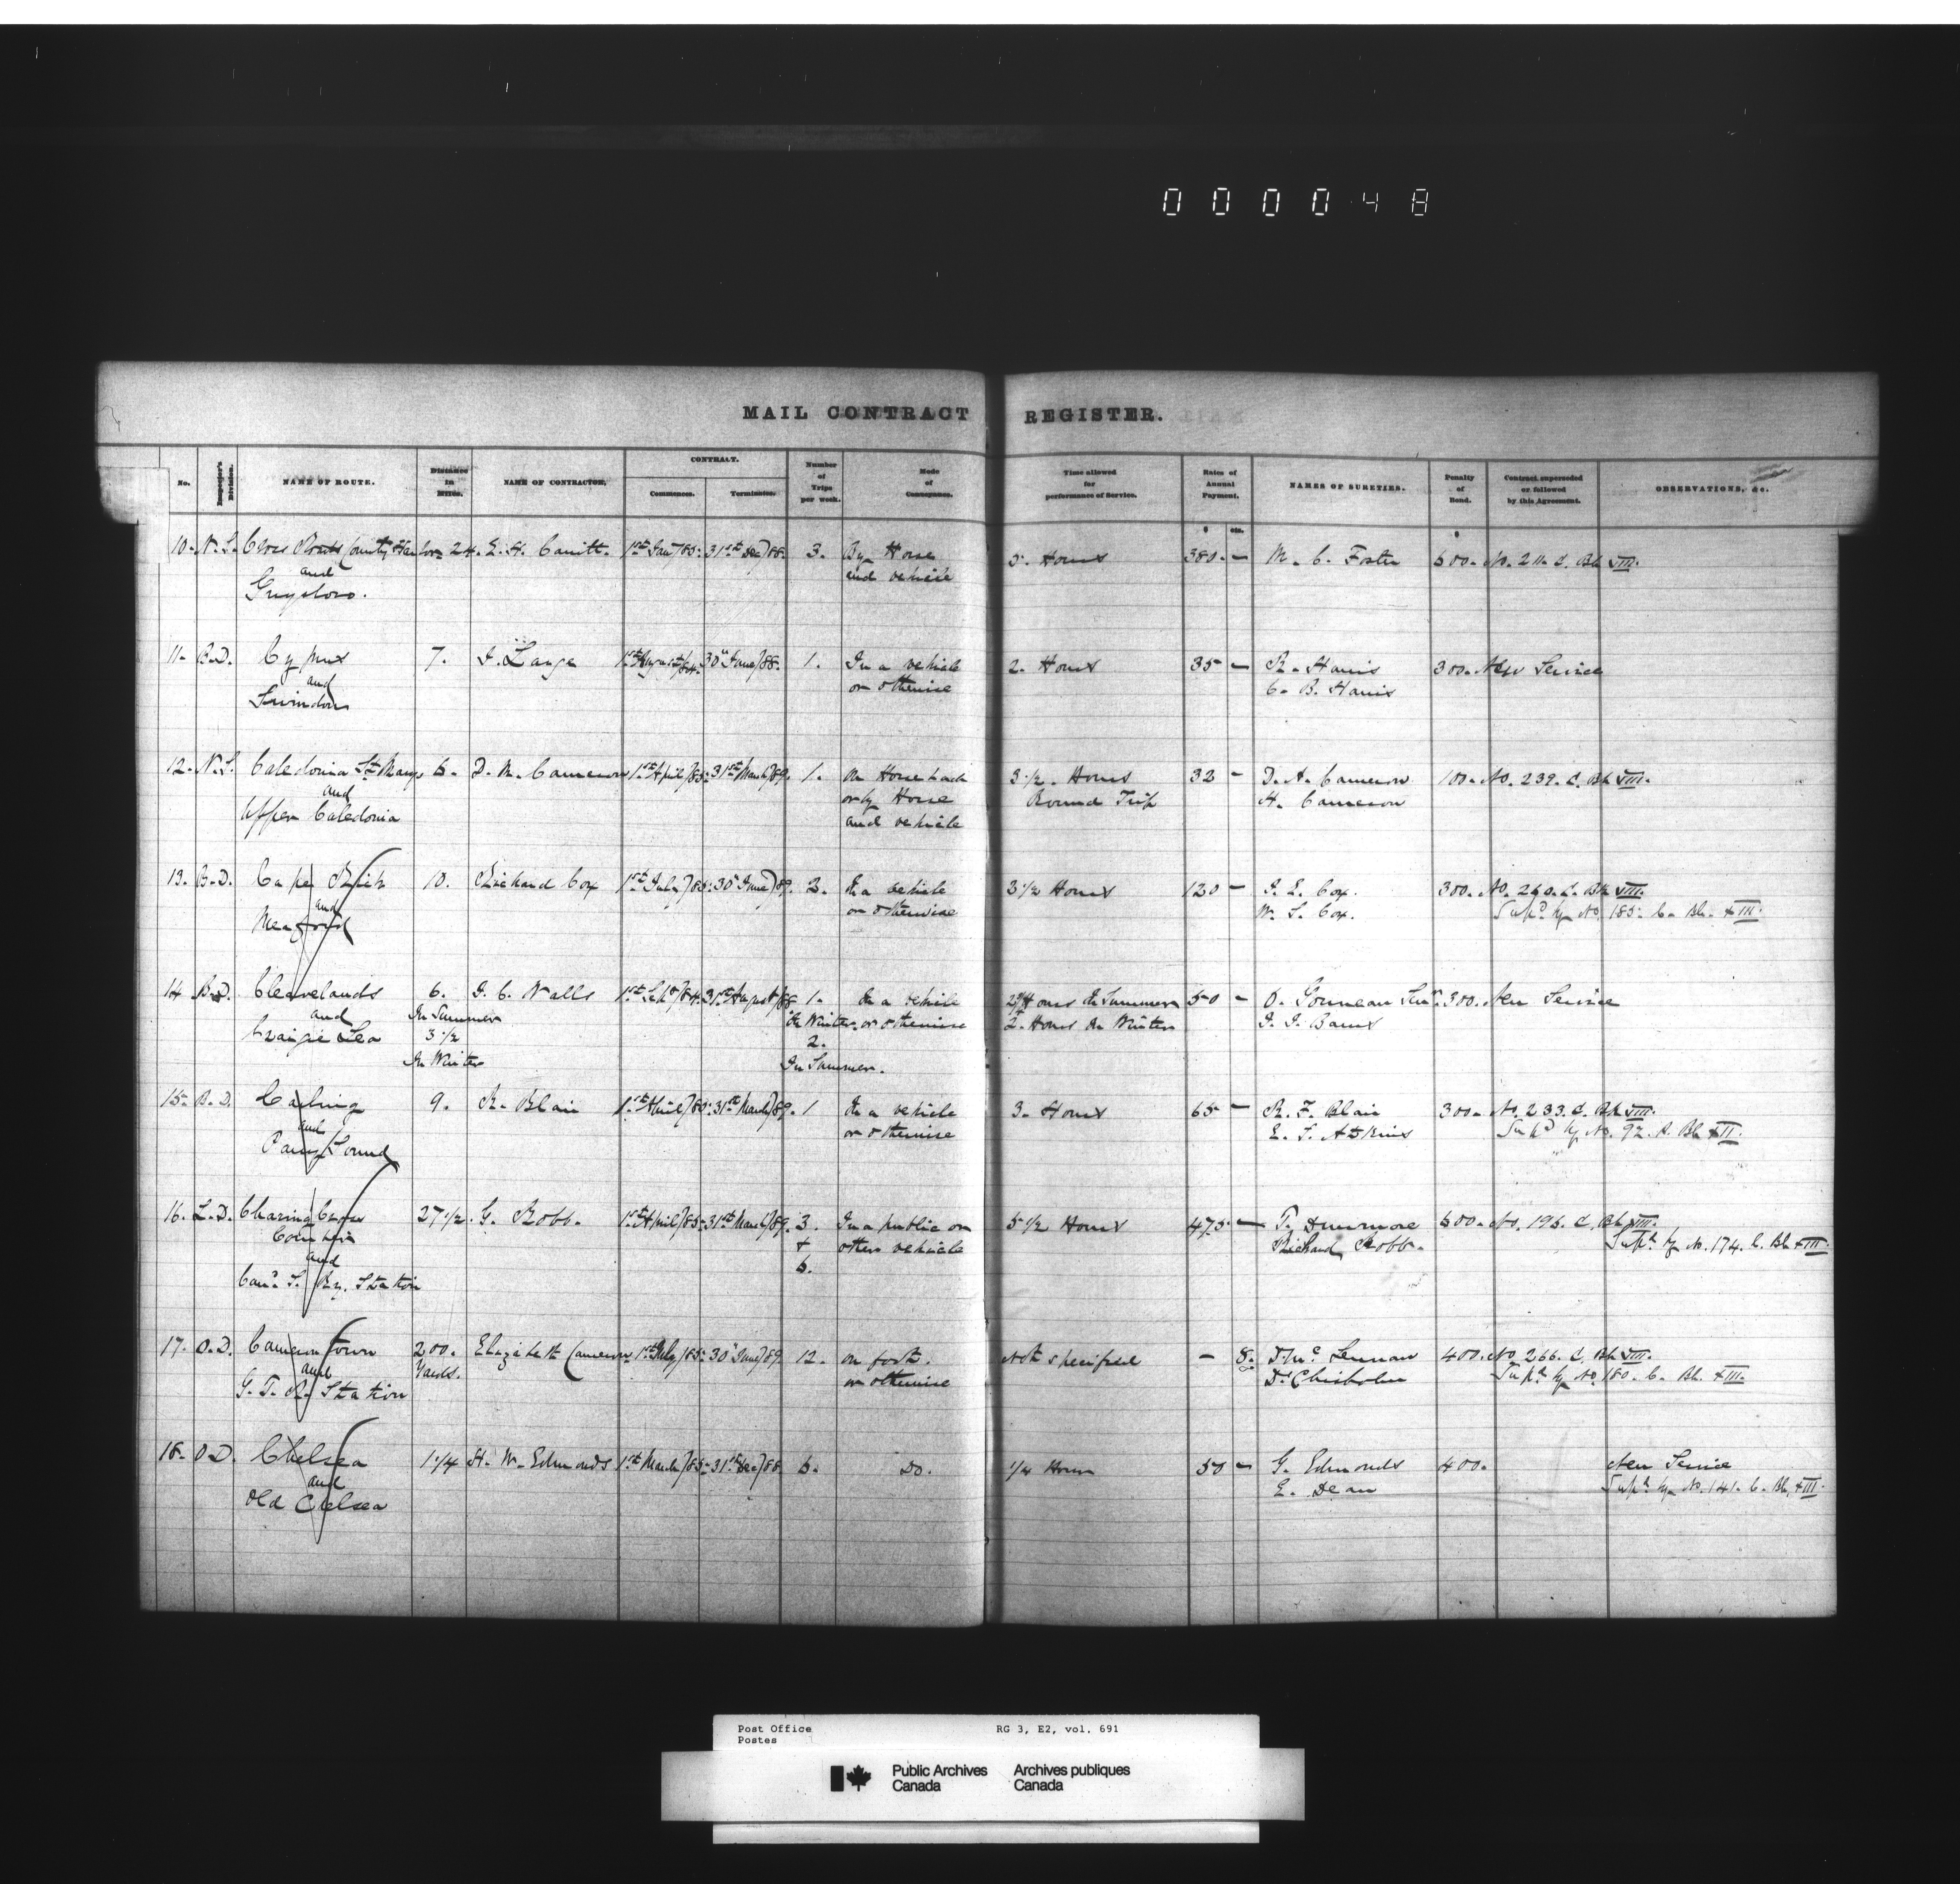 000048
MAIL CONTRACT REGISTER.
No. Inspector's Division. NAME OF ROUTE. Distance in Miles. NAME OF CONTRACTOR. CONTRACT. Commences. Terminates. Number of Trips per week. Mode of Conveyance. Time allowed for performance of Service. Rates of Annual Payment. NAMES OF SURETIES. Penalty of Bond. Contract superseded or followed by this Agreement. OBSERVATIONS, &c.
$ cts. $
10. N.S. Cross Roads County Harbor 24. E. H. 1st Jany/85. 31st Dec/88. 3. By Horse 5. Hours 380. — M. C. Foster 600. No. 211. C. Bk VIII.
and and vehicle
Guysboro.
11. B.D. Cyprus 7. J. Lange 1st August/84. 30" June/88. 1. In a vehicle 2. Hours 35 — R. Harris 300. New Service
and or otherwise C. B. Harris
Swindon
12. N.S. Caledonia St. Marys 6. D. M. Cameron 1st April/85. 31st March/89. 1. On Horseback 3 1/2. Hours 32 — D. A. Cameron 100. No. 239. C. Bk VIII.
and or by Horse Round Trip H. Cameron
Upper Caledonia and vehicle
13. B.D. Cape Rich 10. Richard Cox 1st July/85. 30" June/89. 2. In a vehicle 3 1/2 Hours 120 — J. E. Cox. 300. No. 260. C. Bk VIII.
and or otherwise W. S. Cox. Supd by No. 185. C. Bk. XIII.
Meaford
14 B.D. Cleavelands 6. J. C. Walls 1st Sept/84. 31st August/88 1. In a vehicle Hours In Summer 50 — O. Gonneau Senr. 300. New Service
and In Summer In Winter. or otherwise 2. Hours In Winter J. J. Barns
Craigie Lea 3 1/2 2.
In Winter In Summer.
15. B.D. Carling 9. R. Blair 1st April/85. 31st March/89. 1 In a vehicle 3. Hours 65 — R. F. Blair 300. No. 233. C. Bk VIII.
and or otherwise E. S. Adkins Supd by No. 92. Bk XII.
Parry Sound
16. L.D. Charing Cross 27 1/2. G. Robb. 1st April/85. 31st March/89. 3. In a public or 5 1/2 Hours 475 — T. Dunmore 600. No. 196. C. Bk VIII.
and & other vehicle Richard Robb. Supd by No. 174. C. Bk XIII.
Cana. S. Ry. Station 6.
17. O.D. Camerontown 200. Elizabeth Cameron 1st July/85. 30" June/89. 12. On foot. Not specified — 8. D. Mc Lennan 400. No 266. C. Bk VIII.
and Yards. or otherwise D. Chisholm Supd by No. 180. C. Bk. XIII.
G. T. R. Station
18. O.D. Chelsea 1 1/4 H. W. Edmonds 1st March/85. 31st Dec/88 6. Do. 1/4 Hour 50 — G. Edmonds 400. New Service
and E. Dean Supd by No. 141. C. Bk. XIII.
Old Chelsea
Post Office RG 3, E2, vol. 691
Postes
Public Archives Archives publiques
Canada Canada